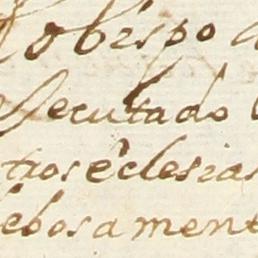 obispo
secutado
tros eclesias
lebosament